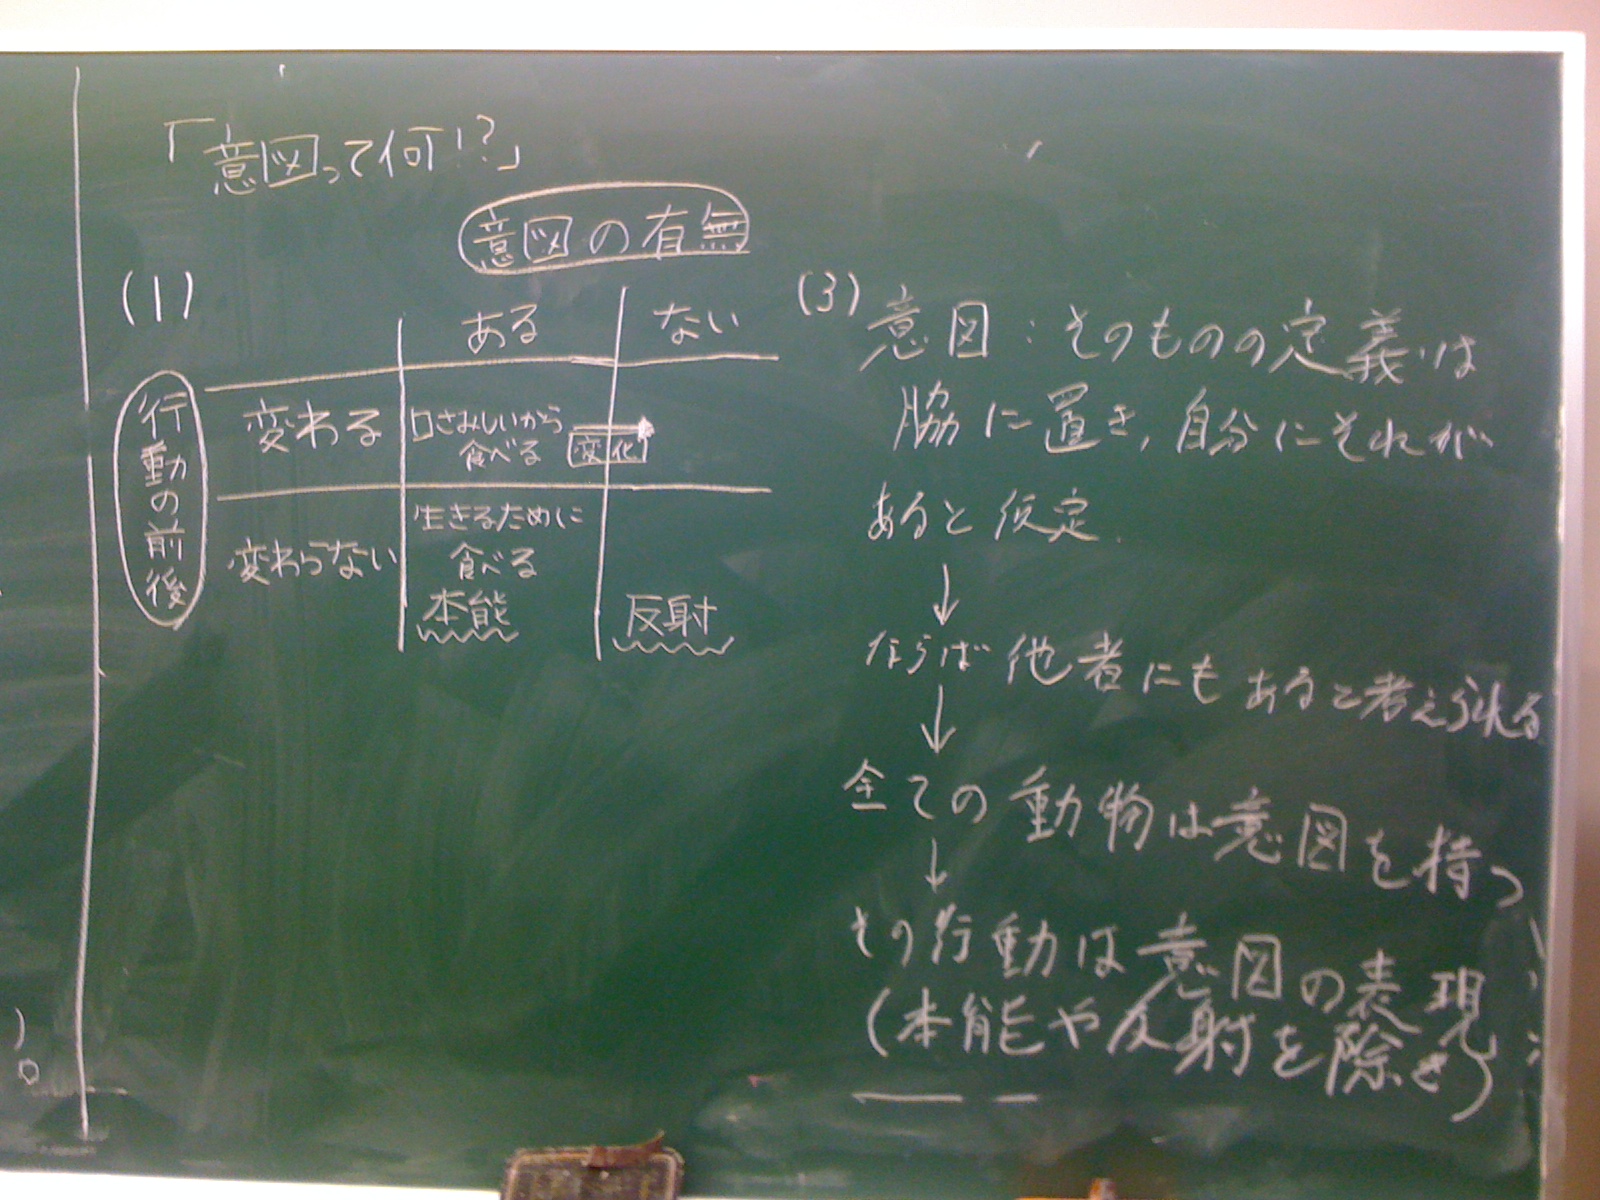 「意図って何!?」
意図の有無
(1)
ある
ない
行動の前後
変わる
口さみしいから
食べる
変化
変わらない
生きるために
食べる
本能
反射
(3)
意図:そのものの定義は
脇に置き,自分にそれが
あると仮定.
↓
ならば他者にもあると考えられる
↓
全ての動物は意図を持つ
↓
その行動は意図の表現
(本能や反射を除き)